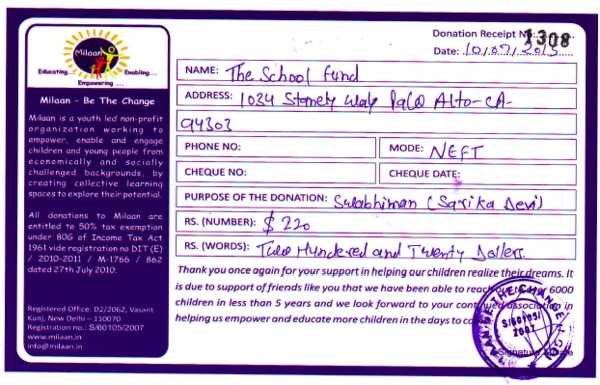 Milaan
Educating... Enabling...
Empowering ...
Milaan - Be The Change
Milaan is a youth led non-profit
organization working to
empower, enable and engage
children and young people from
economically and socially
challenged backgrounds, by
creating collective learning
spaces to explore their potential.
All donations to Milaan are
entitled to 50% tax exemption
under 80G of Income Tax Act
1961 vide registration no DIT (E)
/ 2010-2011 / M-1766 / 862
dated 27th July 2010.
Registered Office: D2/2062, Vasant
Kunj, New Delhi – 110070
Registration no.: S/60105/2007
www.milaan.in
info@milaan.in
Donation Receipt No. 1308
Date: 10/07/2013
NAME: The School Fund
ADDRESS: 1034 Palo Alto-CA-
94303
PHONE NO: MODE: NEFT
CHEQUE NO: CHEQUE DATE:
PURPOSE OF THE DONATION: Swabhiman (Sarika Devi)
RS. (NUMBER): $ 220
RS. (WORDS): Two Hundered and Twenty Dollers.
Thank you once again for your support in helping our children realize their dreams. It
is due to support of friends like you that we have been able to reach 6000
children in less than 5 years and we look forward to your continued association in
helping us empower and educate more children in the days to
MILAAN BE THE CHANGE
S/60105/
2007
Signature